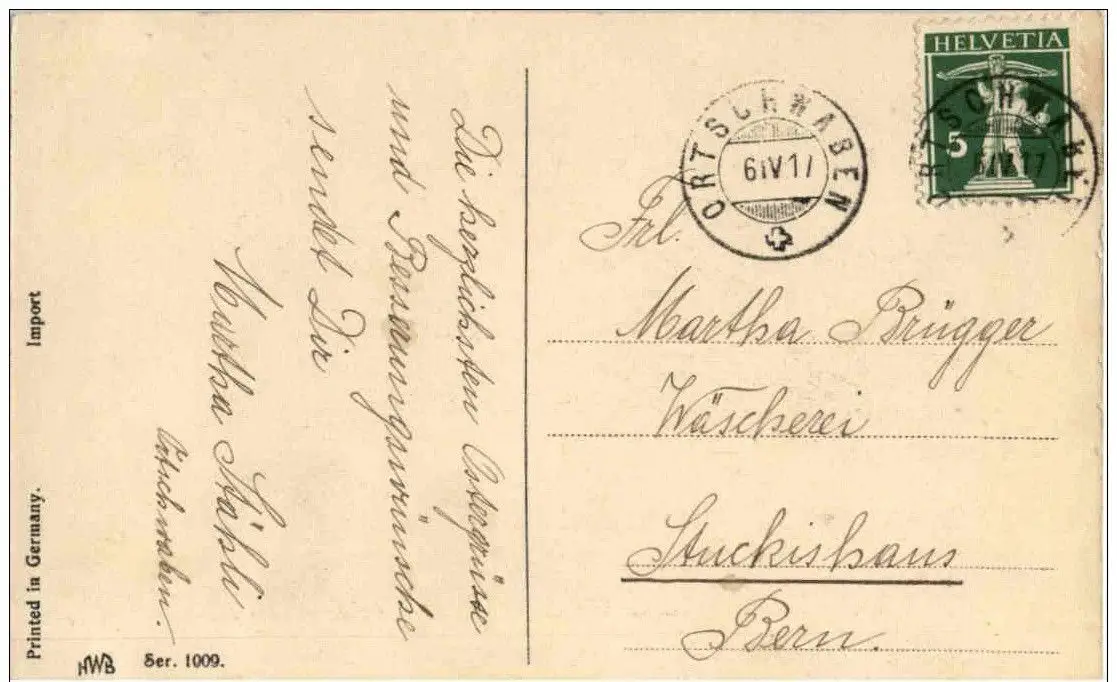 Die herzlichsten Ostergrüsse
und Besserungswünsche
sendet Dir
Martha Stähli
Ortschwaben.
HELVETIA
5
ORTSCHWABEN
6 IV 17
ORTSCHWABE
6 IV 17
Frl.
Martha Brügger
Wäscherei
Stuckishaus
Bern.
Printed in Germany. Import
HWB Ser. 1009.